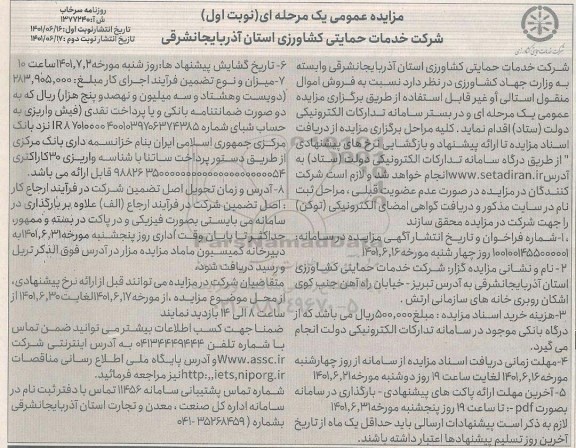 روزنامه سرخاب
ش آ:۱۳۷۷۲۴۰
تاریخ انتشار نوبت اول: ۱۴۰۱/۰۶/۱۶
تاریخ انتشار نوبت دوم: ۱۴۰۱/۰۶/۱۷
مزایده عمومی یک مرحله ای(نوبت اول)
شرکت خدمات حمایتی کشاورزی استان آذربایجانشرقی
شرکت خدمات حمایتی کشاورزی استان آذربایجانشرقی وابسته
به وزارت جهاد کشاورزی در نظر دارد نسبت به فروش اموال
منقول اسنالی او غیر قابل استفاده از طریق برگزاری مزایده
عمومی یک مرحله ای و در بستر سامانه تدارکات الکترونیکی
دولت (ستاد) اقدام نماید . کلیه مراحل برگزاری مزایده از دریافت
اسناد مزایده تا ارائه پیشنهاد و بازگشایی نرخ های پیشنهادی
" از طریق درگاه سامانه تدارکات الکترونیکی دولت (ستاد) به
آدرس www.setadiran.ir انجام خواهد شد و لازم است شرکت
کنندگان در مزایده در صورت عدم عضویت قبلی ، مراحل ثبت
نام در سایت مذکور و دریافت گواهی امضای الکترونیکی (توکن)
را جهت شرکت در مزایده محقق سازند
۱-شماره فراخوان و تاریخ انتشار آگهی مزایده در سامانه:
۱۰۰۱۰۰۱۴۵۵۰۰۰۰۰۱ روز چهار شنبه مورخه ۱۴۰۱,۶,۱۶
۲- نام و نشانی مزایده گزار: شرکت خدمات حمایتی کشاورزی
استان آذربایجانشرقی به آدرس تبریز - خیابان راه آهن جنب کوی
اشکان روبری خانه های سازمانی ارتش .
۳-هزینه خرید اسناد مزایده : مبلغ ۵۰۰,۰۰۰ریال می باشد که از
درگاه بانکی موجود در سامانه تدارکات الکترونیکی دولت انجام
می گیرد.
۴-مهلت زمانی دریافت اسناد مزایده از سامانه از روز چهارشنبه
مورخه ۱۴۰۱,۶,۱۶ لغایت ساعت ۱۹ روز دوشنبه مورخه ۱۴۰۱,۶,۲۱
۵- آخرین مهلت ارائه پاکت های پیشنهادی - بارگذاری در سامانه
بصورت pdf -: تا ساعت ۱۹ روز پنجشنبه مورخه ۱۴۰۱,۶,۳۱
لازم به ذکر است پیشنهادات ارسالی باید حداقل یک ماه از تاریخ
آخرین روز تسلیم پیشنهادها اعتبار داشته باشند.
۶- تاریخ گشایش پیشنهاد ها:روز شنبه مورخه ۱۴۰۱,۷,۲ ساعت ۱۰
۷-میزان و نوع تضمین فرآیند اجرای کار مبلغ: ۲۸۳,۹۰۵,۰۰۰
(دویست وهشتاد و سه میلیون و نهصدو پنج هزار) ریال که به
دو صورت ضمانتنامه بانکی و یا پرداخت نقدی (فیش واریزی به
حساب شبای شماره IR۸۷۰۱۰۰۰۰۴۰۰۱۰۳۹۷۰۶۳۷۴۳۸۵ نزد بانک
مرکزی جمهوری اسلامی ایران بنام خزانه داری بانک مرکزی
از طریق دستور پرداخت ساتنا با شناسه واریزی ۳۰کاراکتری
قابل ارائه می باشد.
۸-آدرس و زمان تحویل اصل تضمین شرکت در فرآیند ارجاع کار
: اصل تضمین شرکت در فرآیند ارجاع (الف) علاوه بر بارگذاری در
سامانه می بایستی بصورت فیزیکی و در پاکت در بسته و ممهور،
حداکثر تا پایان وقت اداری روز پنجشنبه مورخه ۱۴۰۱,۶,۳۱به
دبیرخانه کمیسون ماماد مزایده مزار در آدرس فوق الذکر تریل
و رسید دریافت شود.
متقاضیان شرکت در مزایده می توانند قبل از ارائه نرخ پیشنهادی،
از محل موضوع مزایده ،از مورخه ۱۴۰۱,۶,۱۷لغایت۱۴۰۱,۶,۳۰ از
ساعت ۸ الی ۱۴ بازدید نمایند
ضمنا جهت کسب اطلاعات بیشتر می توانید ضمن تماس با
شماره تلفن ۰۴۱۳۴۴۴۹۴۴۴ به آدرس اینترنتی شرکت
Www.assc.ir و آدرس پایگاه ملی اطلاع رسانی مناقصات
http:,,iets,niporg.irنیز مراجعه فرمائید.
شماره تماس پشتیبانی سامانه ۱۱۴۵۶ تماس با دفتر ثبت نام در
سامانه اداره کل صنعت ، معدن و تجارت استان آذربایجانشرقی
بشماره ( ۳۵۲۶۸۴۵۹ -۰۴۱